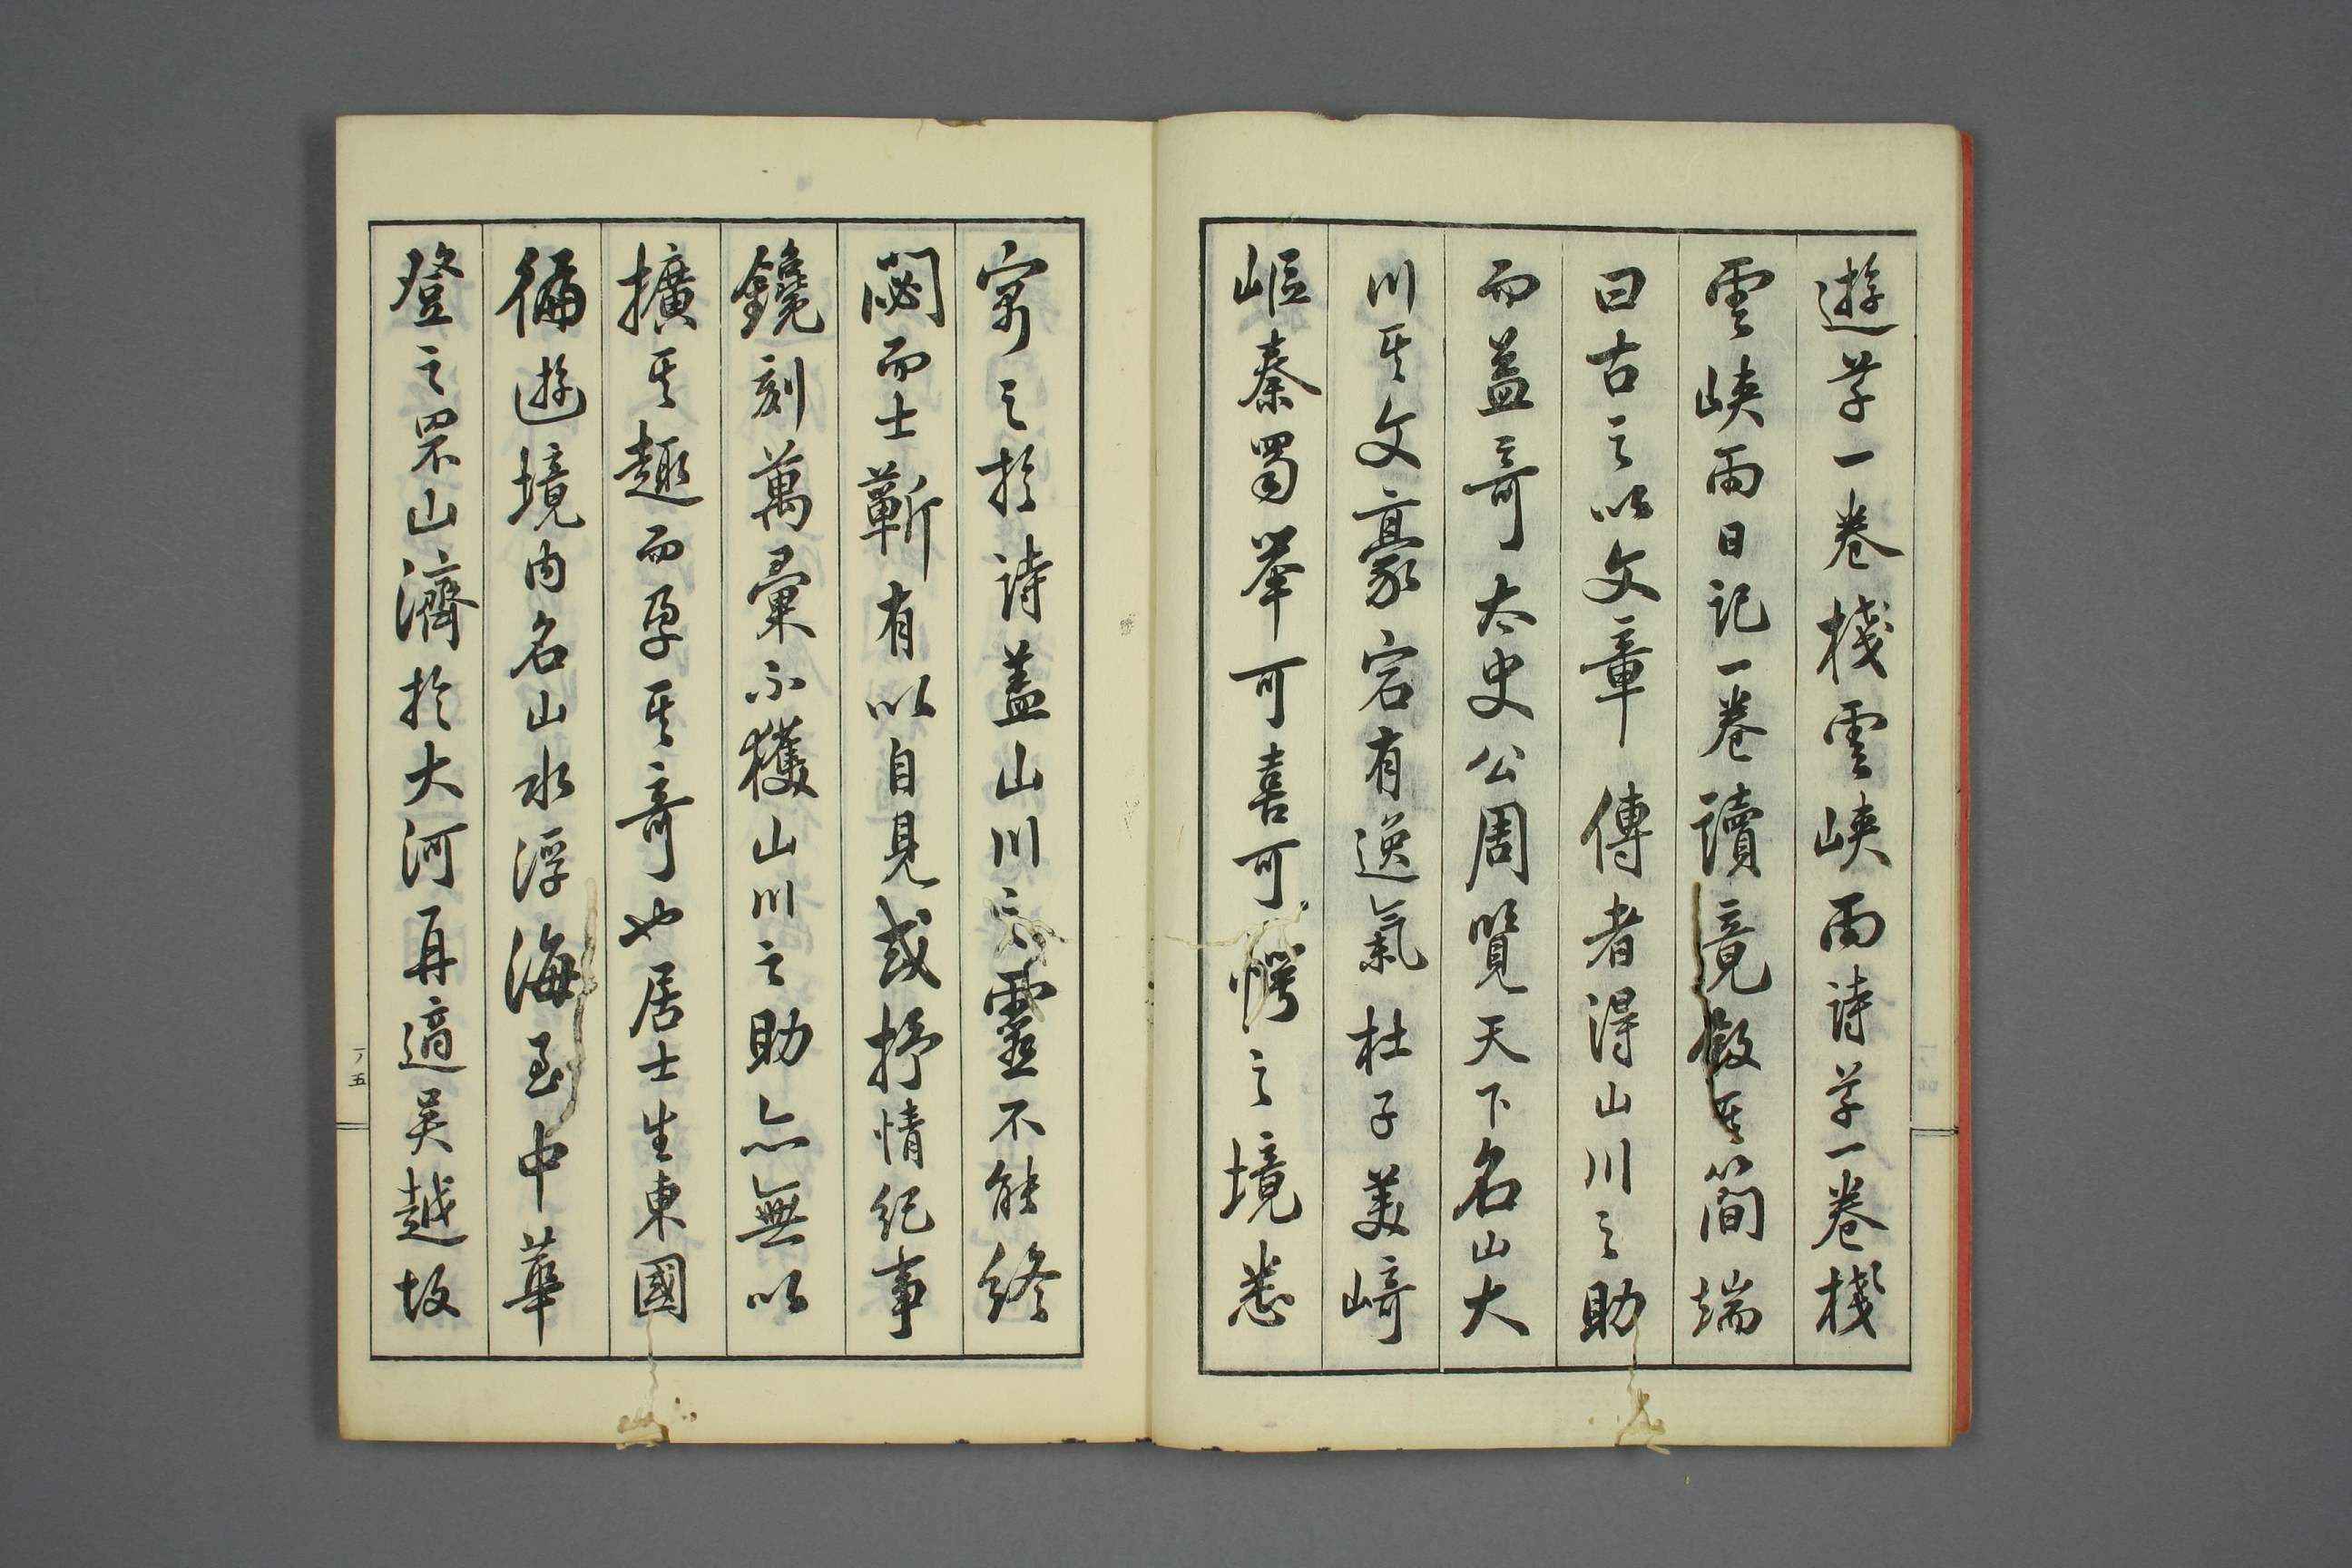 遊草一卷棧雲峽雨詩草一卷棧
雲峽雨日記一卷讀竟敘其簡端
曰古之以文章傳者得山川之助
而益奇太史公周覽天下名山大
川其文豪宕有逸氣杜子美崎
嶇秦蜀舉可喜可愕之境悉
寓之於詩蓋山川之靈不能終
閟而士蘄有以自見或抒情紀事
鑱刻萬彙不獲山川之助亦無以
擴其趣而孕其奇也居士生東國
徧遊境內名山水浮海至中華
登之罘山濟於大河再適吳越故
五